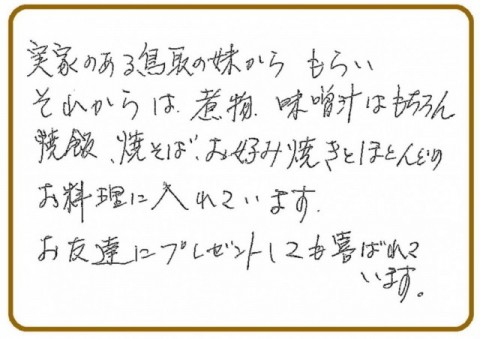 実家のある鳥取の妹から もらい
それからは、煮物、味噌汁はもちろん
焼飯、焼そば、お好み焼きとほとんどの
お料理に入れています。
お友達にプレゼントしても喜ばれて
います。